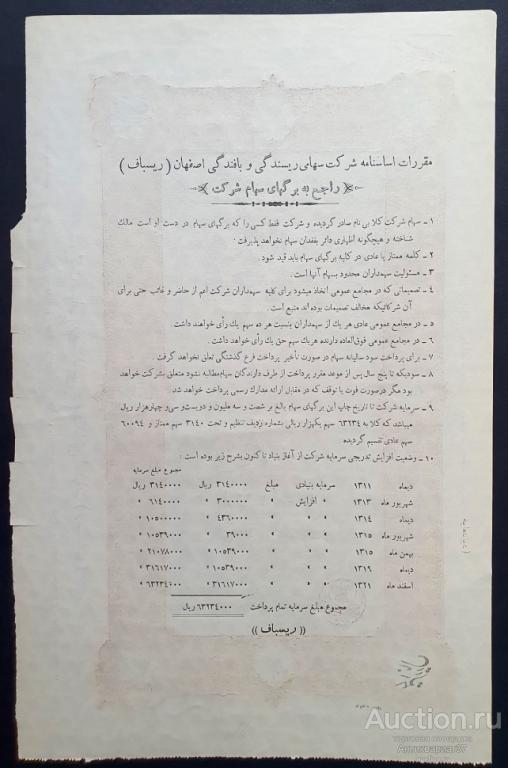 مقررات اساسنامه شرکت سهامی ریسندگی و بافندگی اصفهان ( ریسباف )
راجع به برگهای سهام شرکت
۱ - سهام شرکت کلا بی نام صادر گردیده و شرکت فقط کسی را که برگهای سهام در دست او است مالک
شناخته و هیچگونه اظهاری دائر بفقدان سهام نخواهد پذیرفت .
۲ - کلمه ممتاز یا عادی در کلیه برگهای سهام باید قید شود .
۳ - مسئولیت سهمداران محدود بسهام آنها است .
۴ - تصمیماتی که در مجامع عمومی اتخاذ میشود برای کلیه سهمداران شرکت اعم از حاضر و غائب حتی برای
آن شرکائیکه مخالف تصمیمات بوده اند متبع است .
۵ - در مجامع عمومی عادی هر یک از سهمداران بنسبت هر ده سهم یک رأی خواهند داشت .
۶ - در مجامع عمومی فوق‌العاده دارنده هر یک سهم حق یک رأی خواهد داشت .
۷ - برای پرداخت سود سالیانه سهام در صورت تأخیر پرداخت فرع گذشتگی تعلق نخواهد گرفت
۸ - سودیکه تا پنج سال پس از موعد مقرر پرداخت از طرف دارندگان سهام مطالبه نشود متعلق بشرکت خواهد
بود مگر در صورت فوت یا توقف که در مقابل ارائه مدارک رسمی پرداخت خواهد شد .
۹ - سرمایه شرکت تا تاریخ چاپ این برگهای سهام بالغ بر شصت و سه ملیون و دویست و سی و چهار هزار ریال
میباشد که کلا به ۶۳۲۳۴ سهم یکهزار ریالی بشماره ردیف تنظیم و تحت ۳۱۴۰ سهم ممتاز و ۶۰۰۹۴
سهم عادی تقسیم گردیده
۱۰ - وضعیت افزایش تدریجی سرمایه شرکت از آغاز بنیاد تا کنون بشرح زیر بوده است :
مجموع مبلغ سرمایه
دیماه ۱۳۱۱ سرمایه بنیادی مبلغ ۳۱۴۰۰۰۰ ریال ۳۱۴۰۰۰۰ ریال
شهریور ماه ۱۳۱۳ " افزایش " ۳۰۰۰۰۰۰ " ۶۱۴۰۰۰۰ "
دیماه ۱۳۱۴ " " " ۴۳۶۰۰۰۰ " ۱۰۵۰۰۰۰۰ "
شهریور ماه ۱۳۱۵ " " " ۳۹۰۰۰ " ۱۰۵۳۹۰۰۰ "
بهمن ماه ۱۳۱۵ " " " ۱۰۵۳۹۰۰۰ " ۲۱۰۷۸۰۰۰ "
دیماه ۱۳۱۹ " " " ۱۰۵۳۹۰۰۰ " ۳۱۶۱۷۰۰۰ "
اسفند ماه ۱۳۲۱ " " " ۳۱۶۱۷۰۰۰ " ۶۳۲۳۴۰۰۰ "
مجموع مبلغ سرمایه تمام پرداخت ۶۳۲۳۴۰۰۰ ریال
(( ریسباف ))
Auction.ru
торговая площадка
Антиквариат37